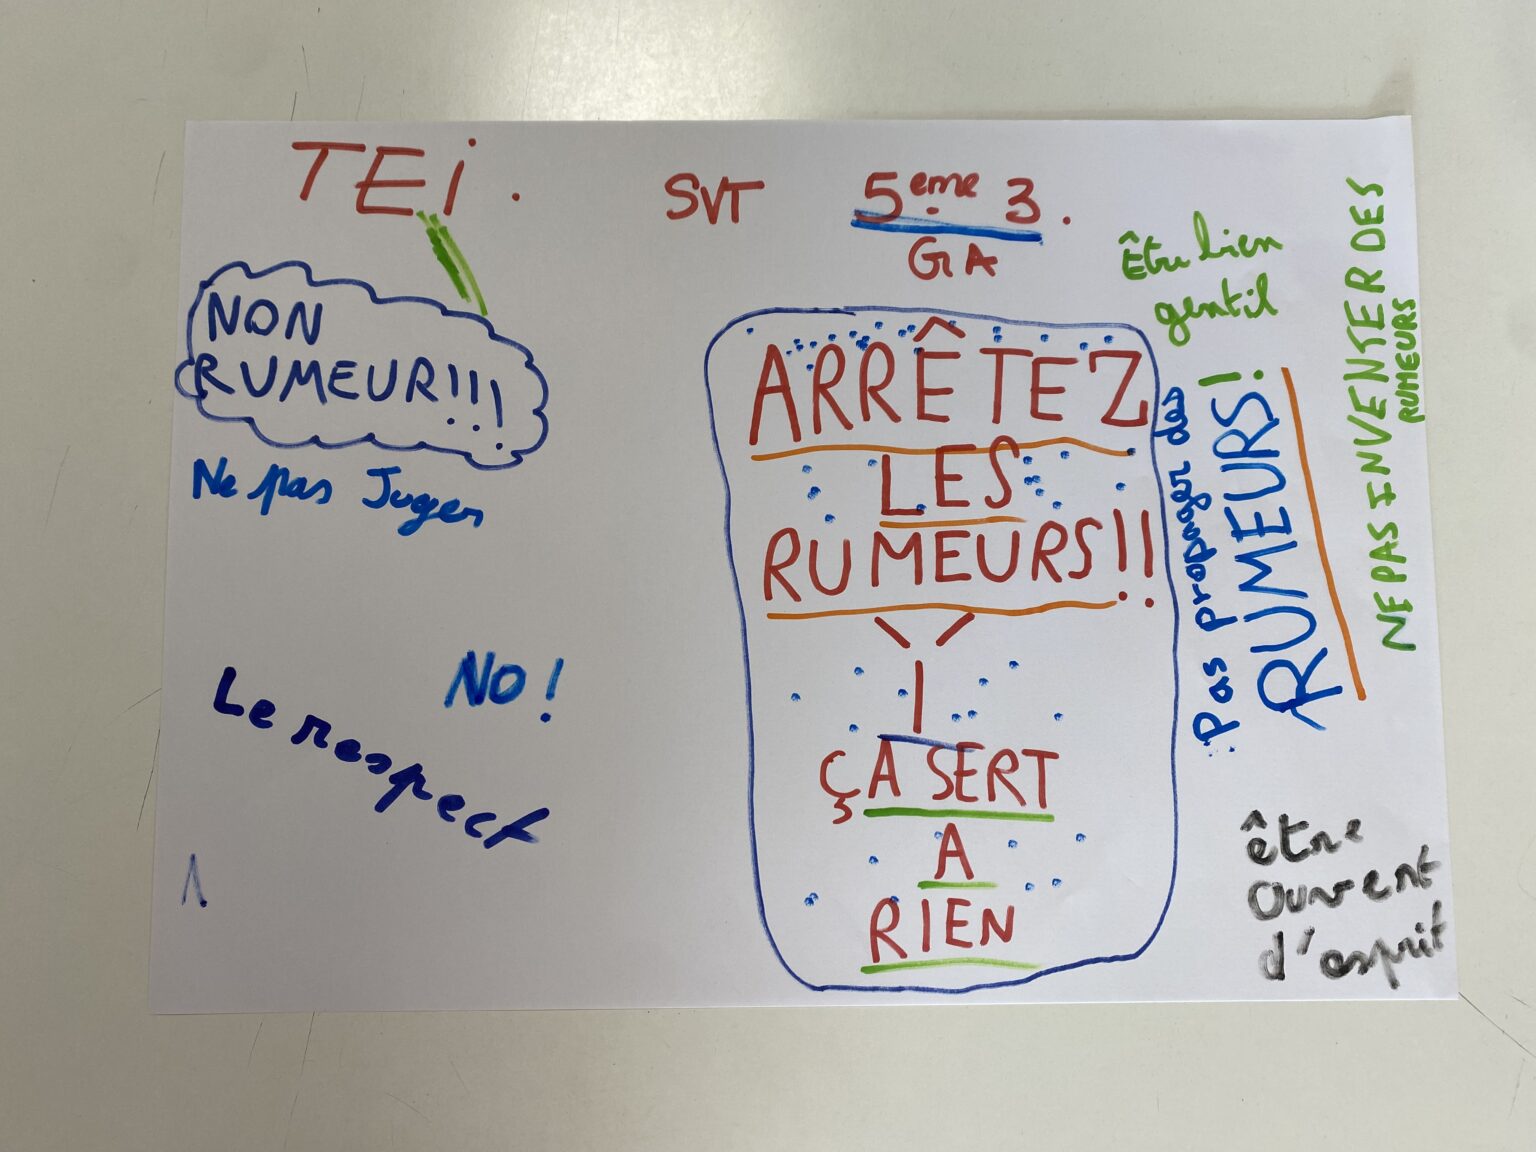 TEi.
SVT 5eme 3.
GA
NON
RUMEUR!!!
Ne pas Juger
NO!
Le respect
ARRÊTEZ
LES
RUMEURS!!
ÇA SERT
A
RIEN
Être bien
gentil
Pas propager des
RUMEURS!
NE PAS INVENTER DES
RUMEURS
être
ouvert
d'esprit